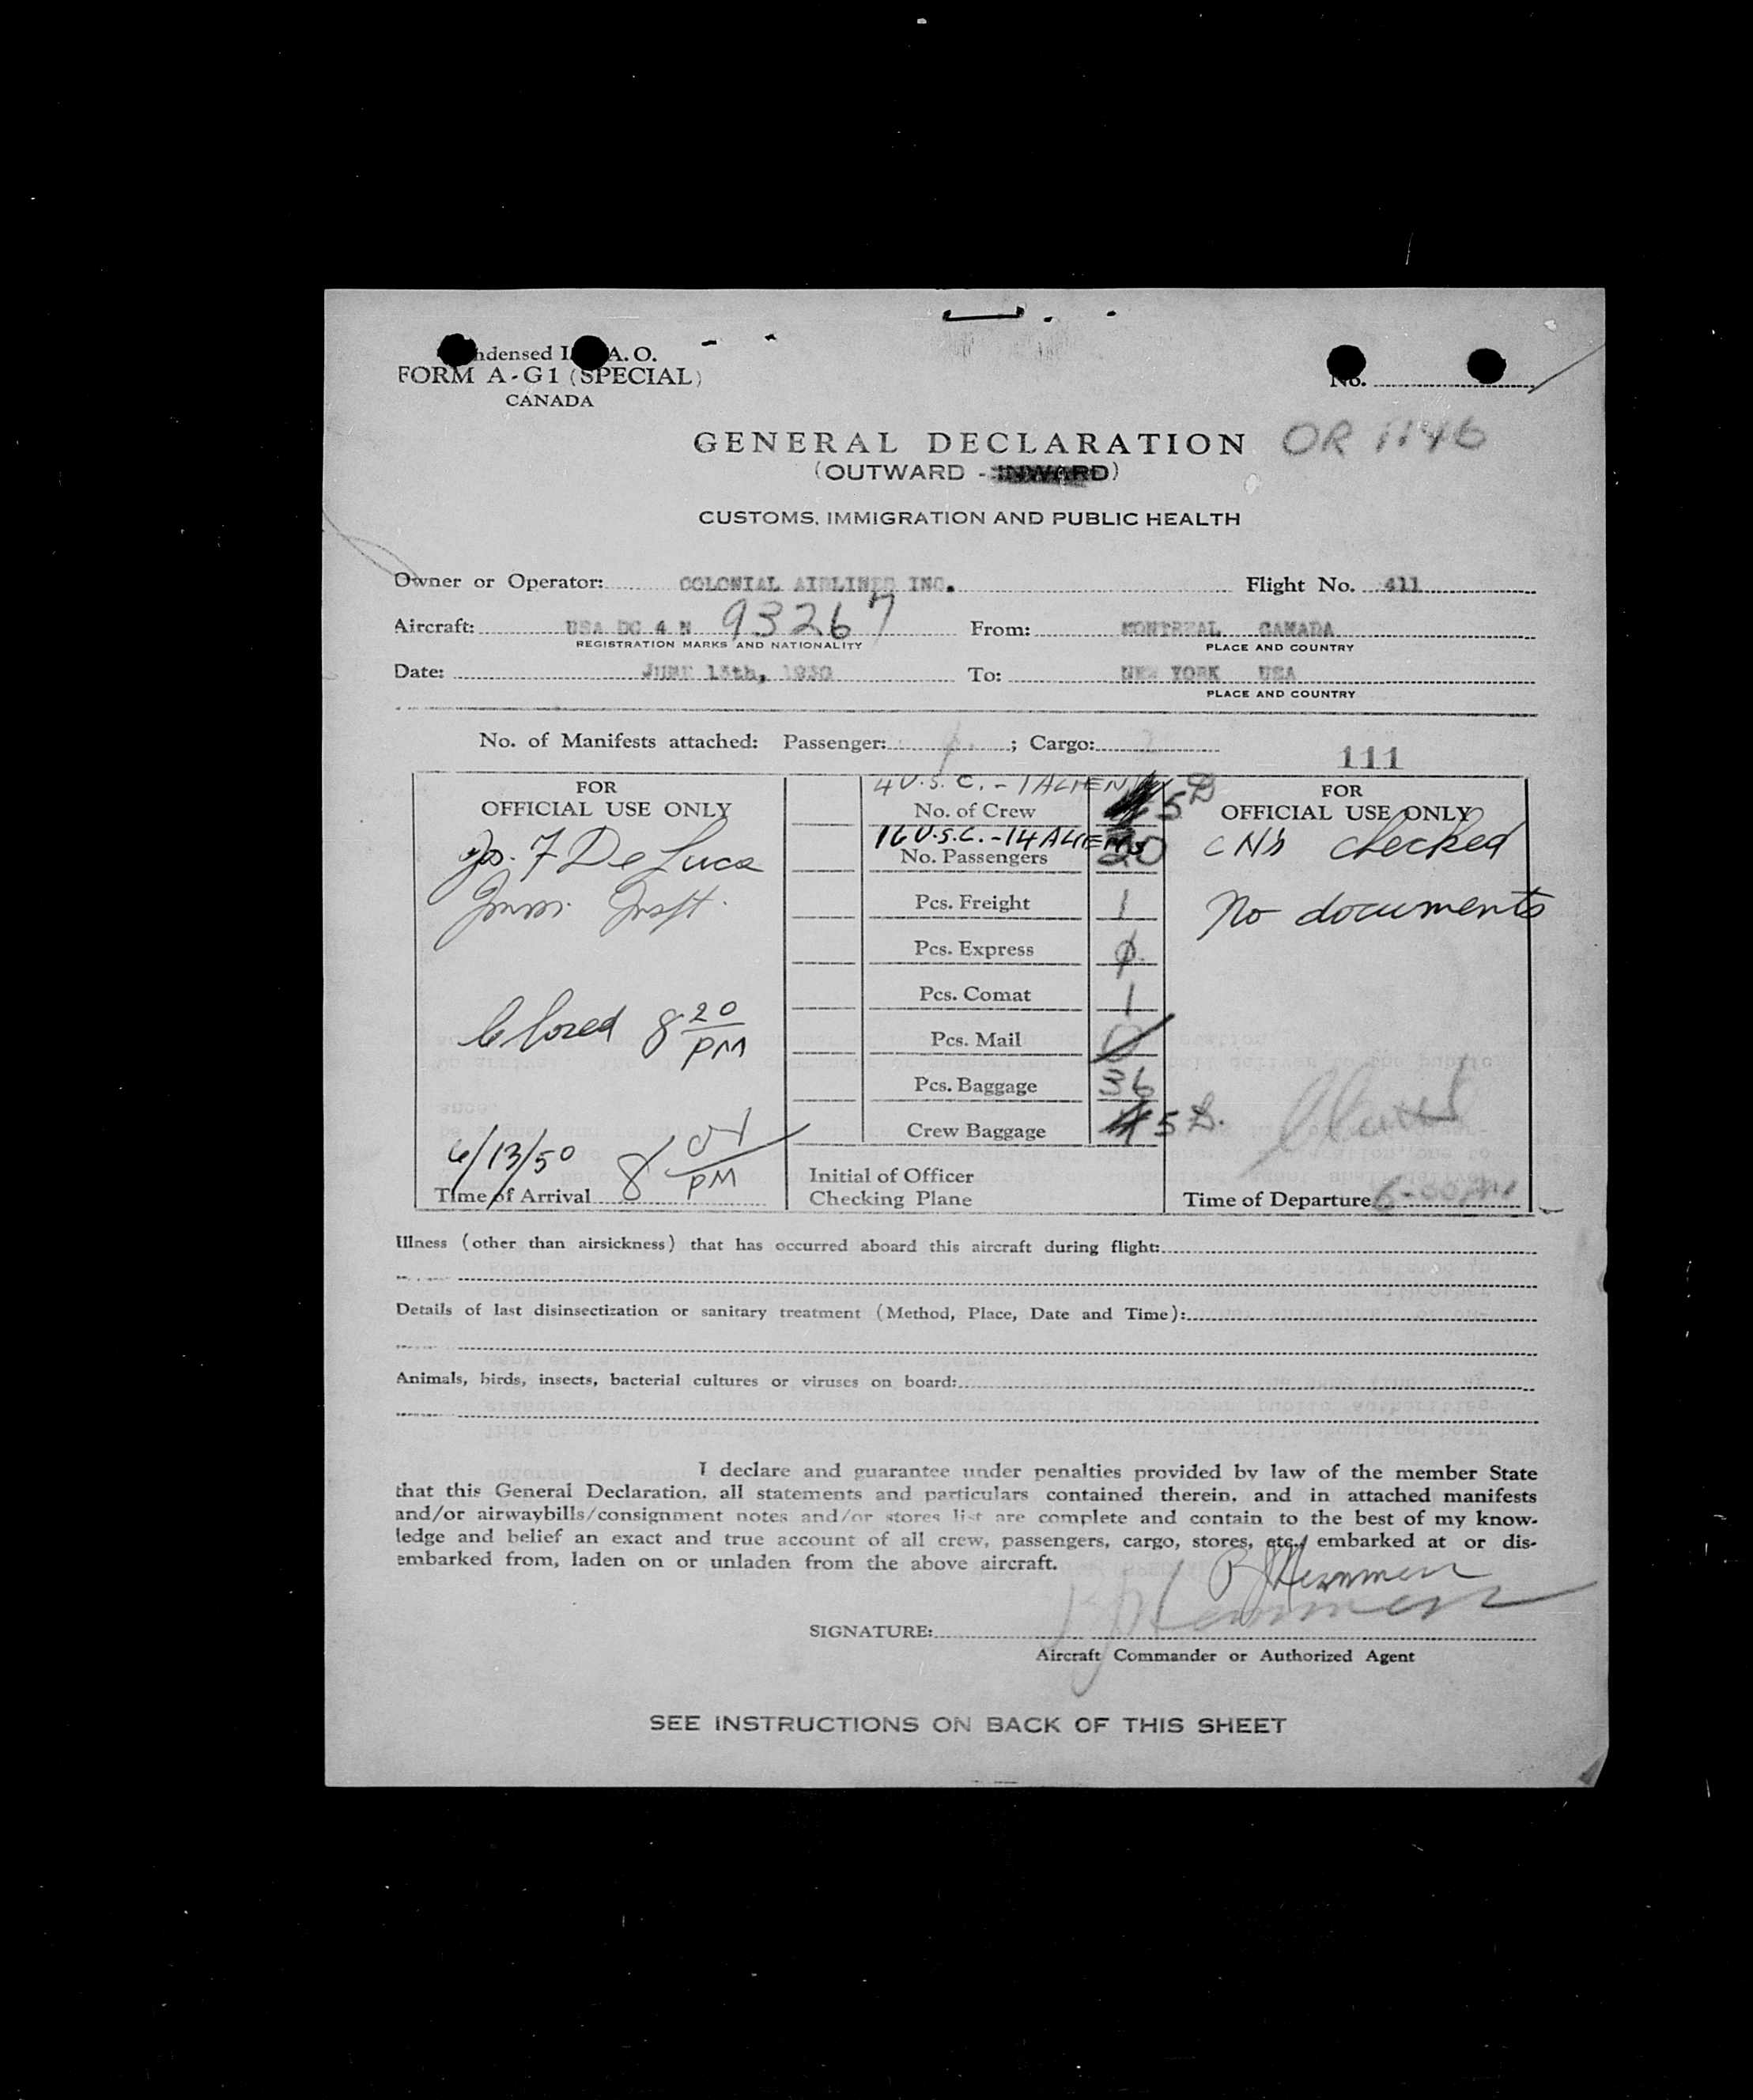 ndensed I A. O.
FORM A-G1 (SPECIAL)
CANADA
No.
GENERAL DECLARATION
OR 1146
(OUTWARD - INWARD)
CUSTOMS, IMMIGRATION AND PUBLIC HEALTH
Owner or Operator: COLONIAL AIRLINES INC. Flight No. 411
Aircraft: USA DC 4 N 93267 From: MONTREAL CANADA
REGISTRATION MARKS AND NATIONALITY PLACE AND COUNTRY
Date: JUNE 13th, 1950 To: NEW YORK USA
PLACE AND COUNTRY
No. of Manifests attached: Passenger: ; Cargo:
111
FOR
OFFICIAL USE ONLY
F De Luca
Closed 8 20 PM
6/13/50
Time of Arrival 8 01 PM
4 U.S.C. - 1 ALIEN
No. of Crew 5
16 U.S.C. - 14 ALIENS
No. Passengers
Pcs. Freight 1
Pcs. Express 0
Pcs. Comat 1
Pcs. Mail 0
Pcs. Baggage 36
Crew Baggage 5
Initial of Officer
Checking Plane
FOR
OFFICIAL USE ONLY
CN's checked
No documents
Time of Departure 6-00 PM
Illness (other than airsickness) that has occurred aboard this aircraft during flight:
Details of last disinsectization or sanitary treatment (Method, Place, Date and Time):
Animals, birds, insects, bacterial cultures or viruses on board:
I declare and guarantee under penalties provided by law of the member State
that this General Declaration, all statements and particulars contained therein, and in attached manifests
and/or airwaybills/consignment notes and/or stores list are complete and contain to the best of my know-
ledge and belief an exact and true account of all crew, passengers, cargo, stores, etc., embarked at or dis-
embarked from, laden on or unladen from the above aircraft.
SIGNATURE:
Aircraft Commander or Authorized Agent
SEE INSTRUCTIONS ON BACK OF THIS SHEET